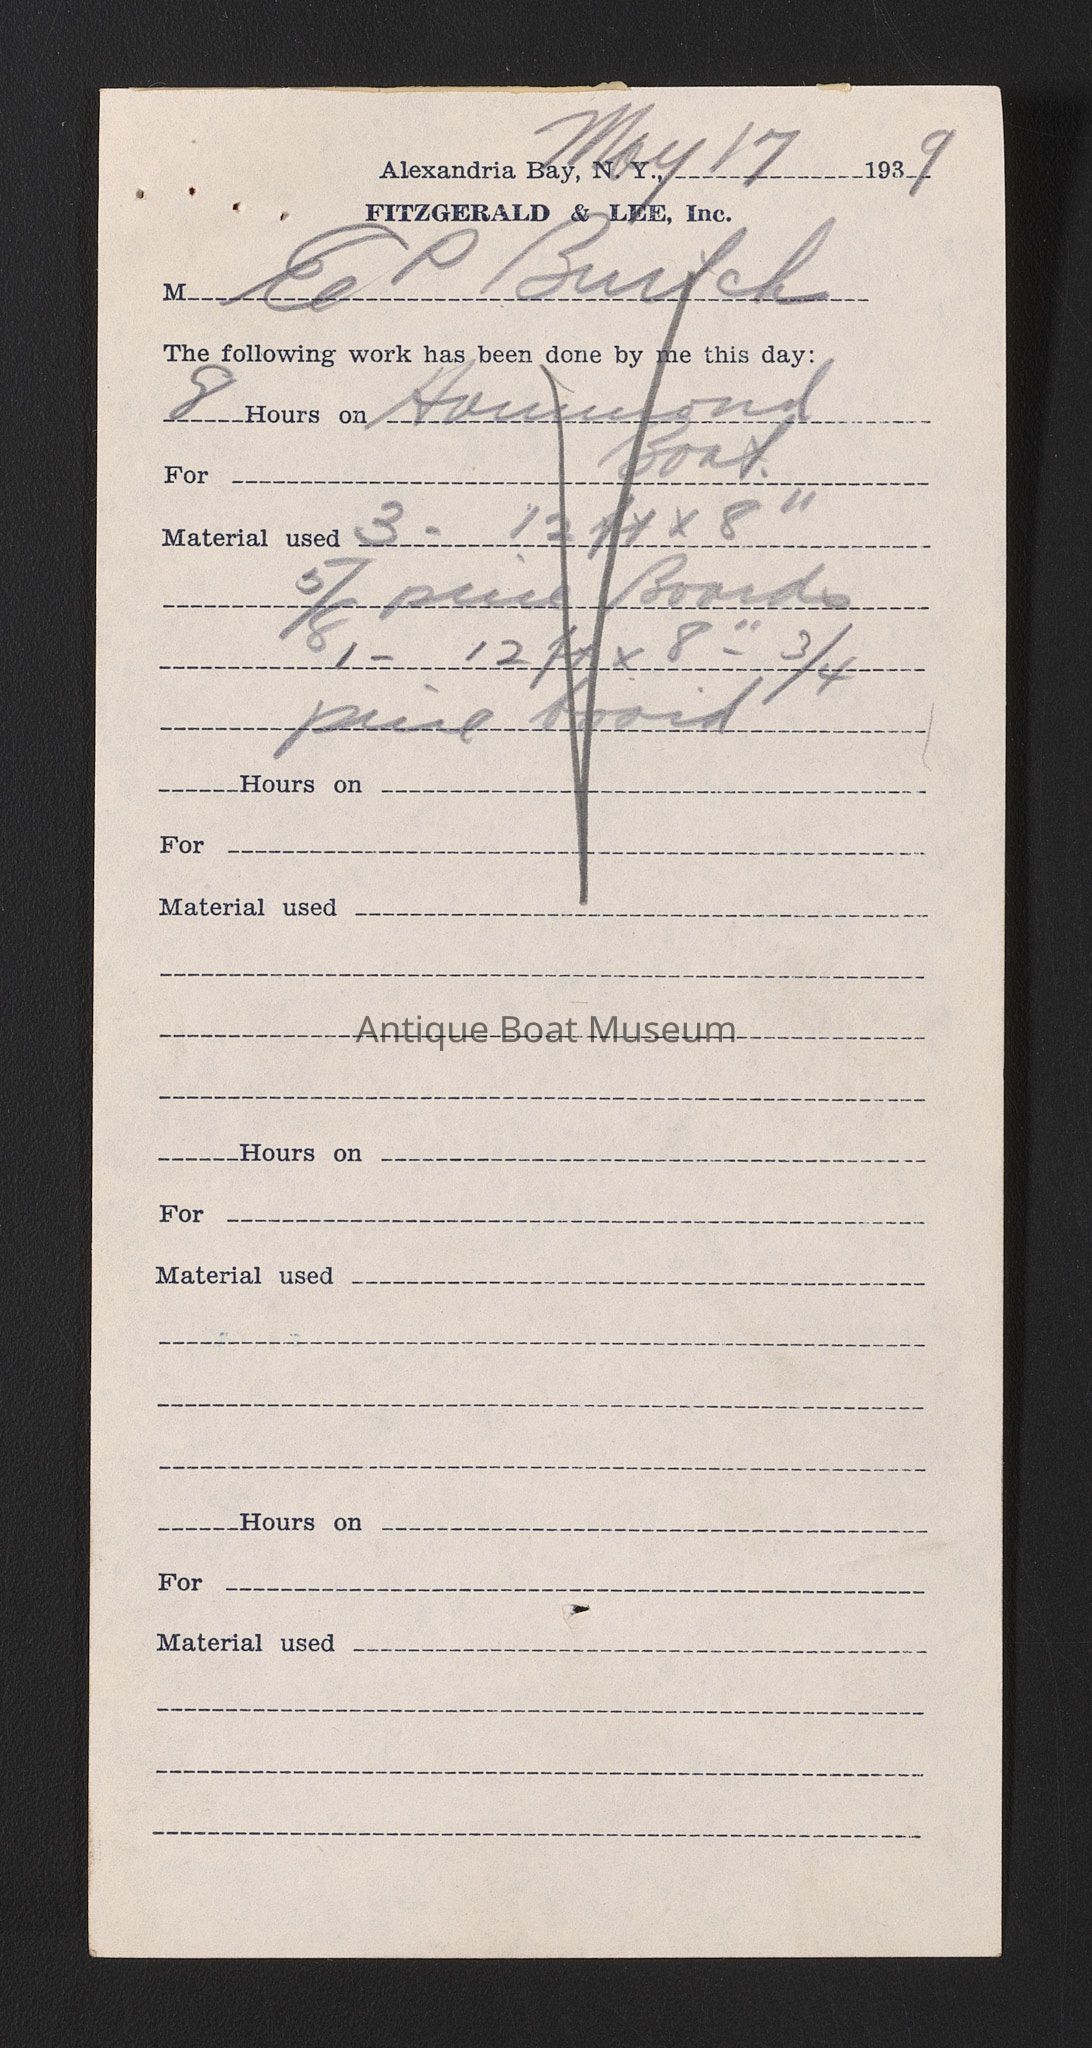 Alexandria Bay, N. Y., May 17 1939
FITZGERALD & LEE, Inc.
M Ed P Burtch
The following work has been done by me this day:
8 Hours on Hammond
For Boat.
Material used 3 - 12 ft x 8"
5/8 pine Boards
1 - 12 ft x 8" - 3/4
pine board
Hours on
For
Material used
Antique Boat Museum
Hours on
For
Material used
Hours on
For
Material used